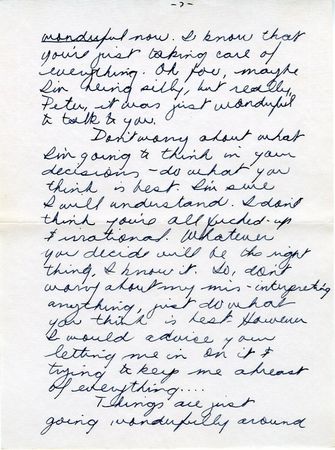 -2-
wonderful now. I know that
you're just taking care of
everything. Oh foo, maybe
I'm being silly, but really,
Peter, it was just wonderful
to talk to you.
Don't worry about what
I'm going to think in your
decisions - do what you
think is best. I'm sure
I will understand. I don't
think you're all fucked-up
& irrational. Whatever
you decide will be the right
thing, I know it. So, don't
worry about my mis-interpreting
anything, just do what
you think is best. However
I would advise your
letting me in on it &
trying to keep me abreast
of everything....
Things are just
going wonderfully around